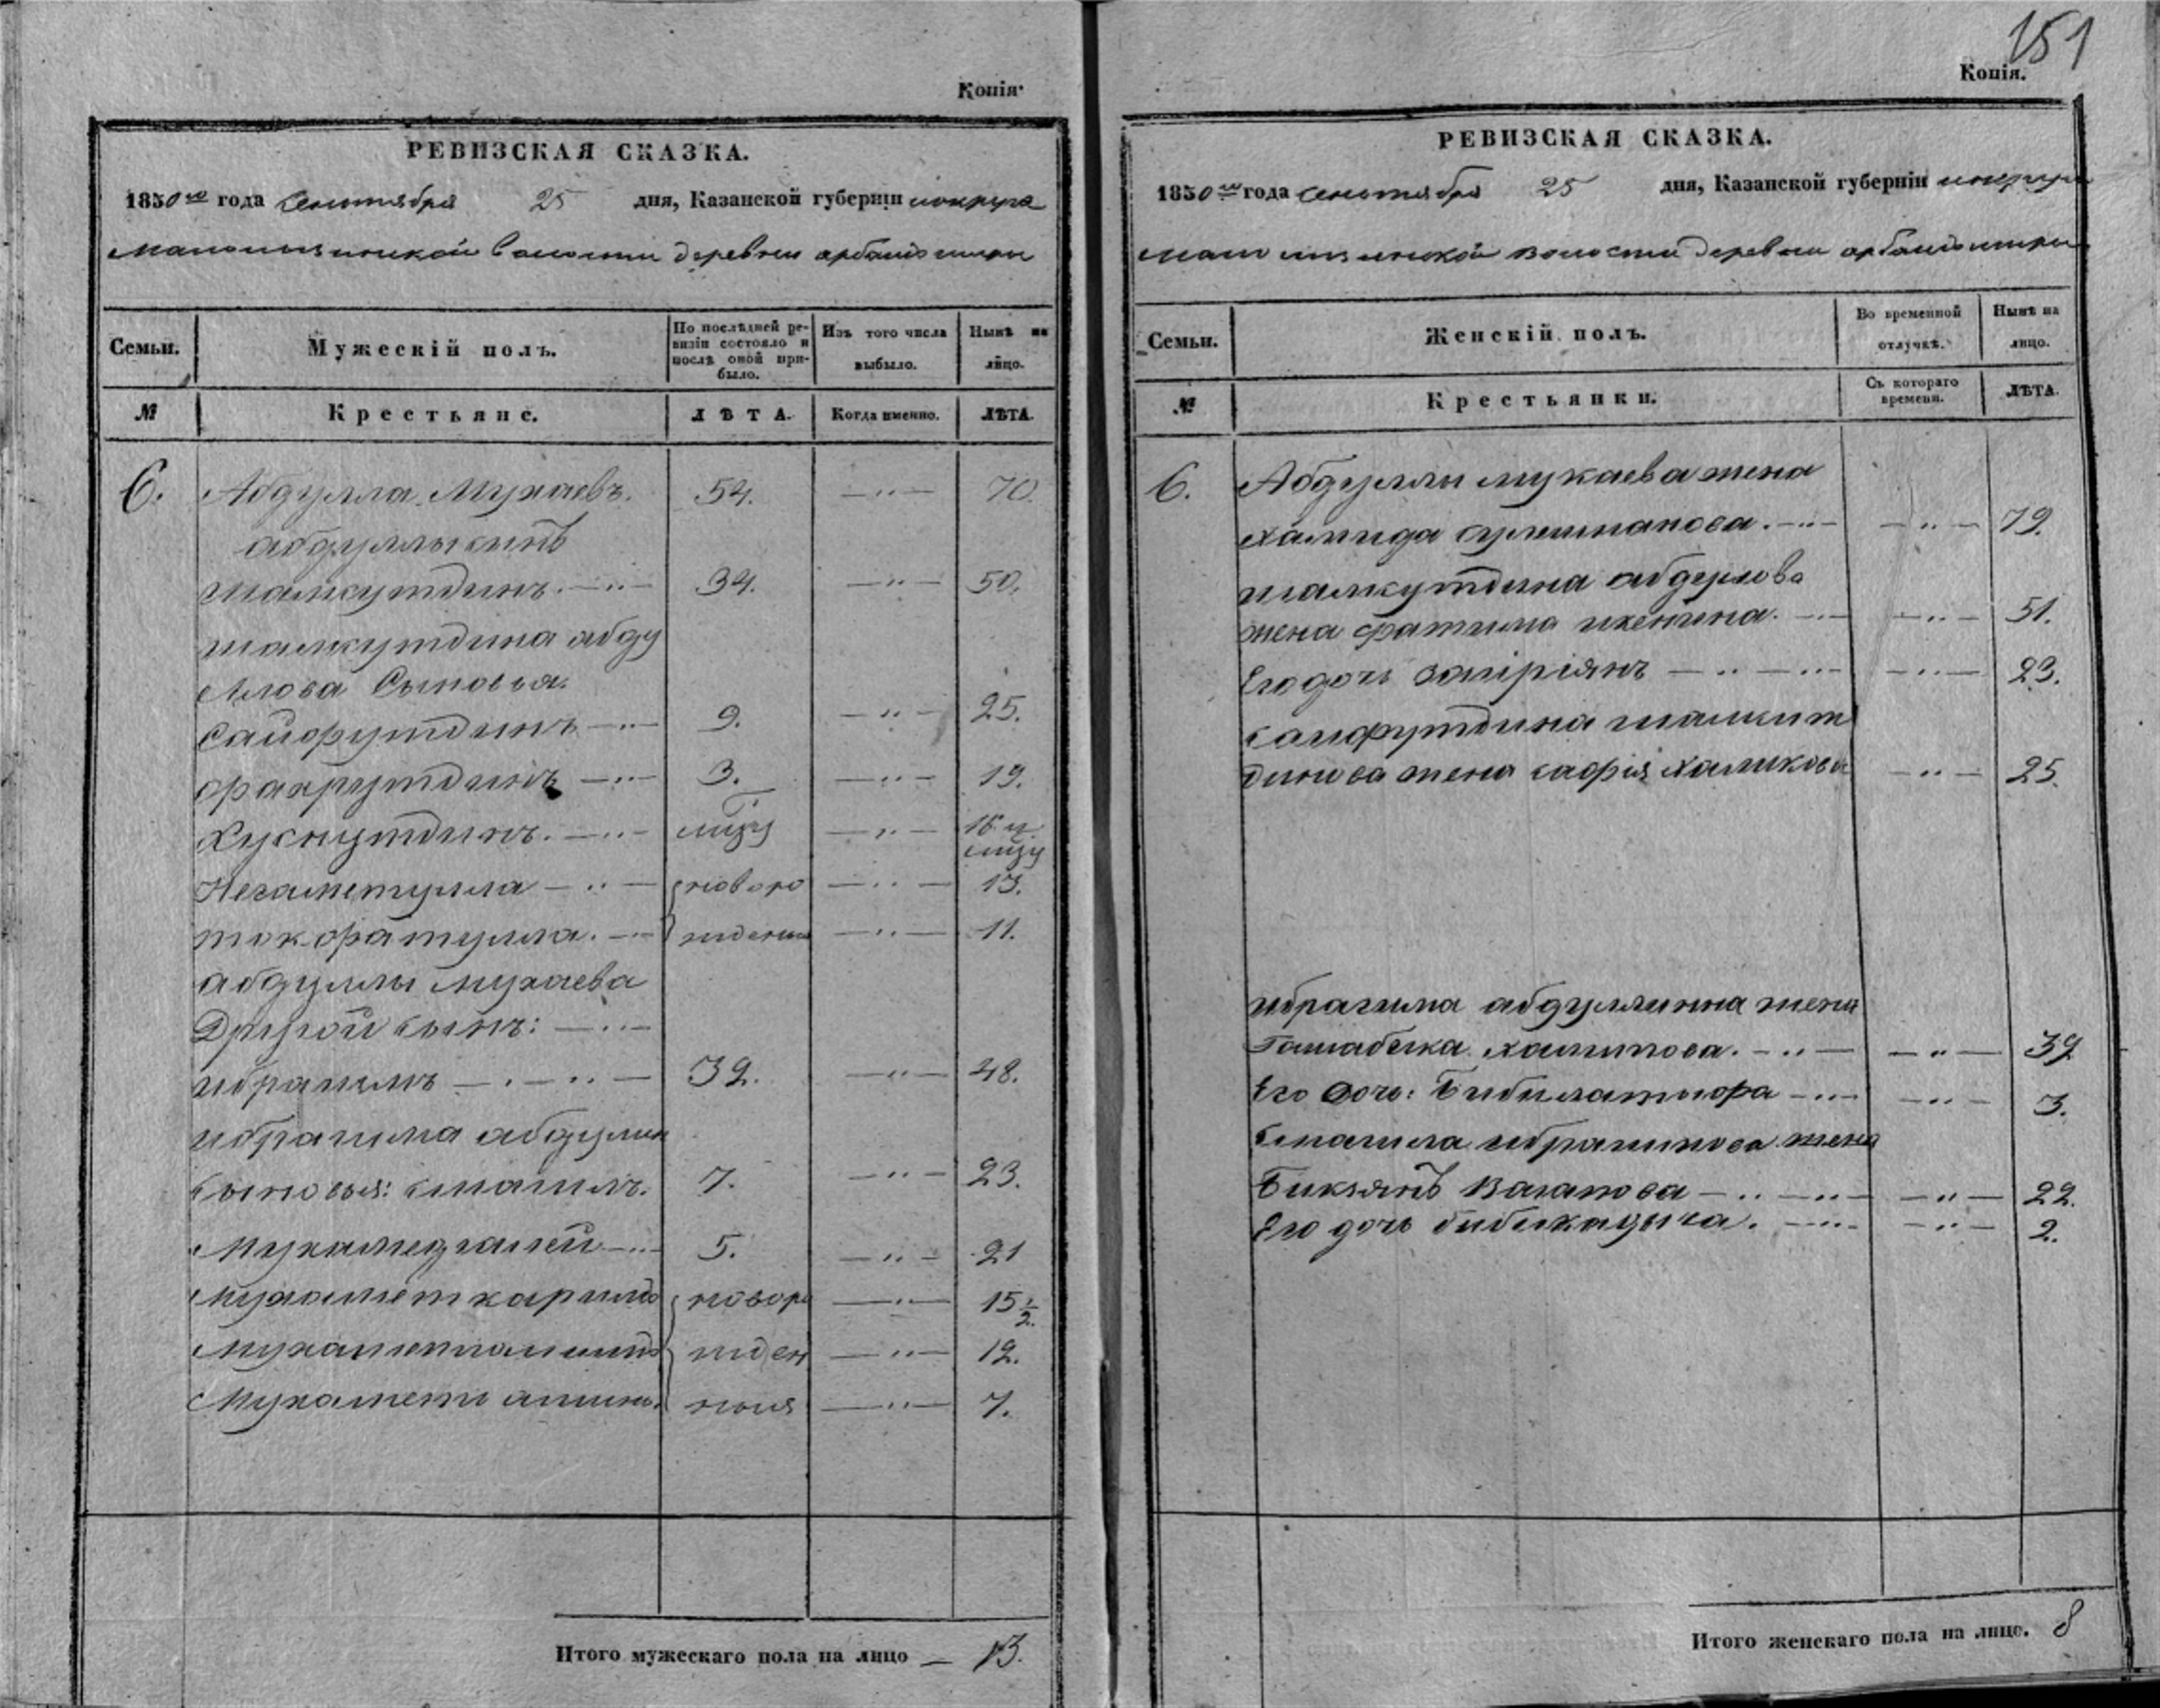 Копія.
РЕВИЗСКАЯ СКАЗКА.
1850го года сентября 25 дня, Казанской губерніи
волости деревни
Семьи.
Мужескій полъ.
По послѣдней ревизіи состояло и послѣ оной прибыло.
Изъ того числа выбыло.
Нынѣ на лицо.
№
Крестьяне.
ЛѢТА.
Когда именно.
ЛѢТА.
6. Абдулла Мукаевъ. 54. — " — 70.
абдуллы сынъ
шамкутдинъ. — " — 34. — " — 50.
шамкутдина абду
лова Сыновья.
сайфутдинъ — " — 9. — " — 25.
фахрутдинъ — " — 3. — " — 19.
Хуснутдинъ. — " — — " —
Негаметулла — " — новоро — " — 13.
— " — жденны — " — 11.
абдуллы мукаева
Другой сынъ: — " —
ибрагимъ — " — 32. — " — 48.
ибрагима абдулин
сыновья: смагилъ. 7. — " — 23.
Мухамедгалей — " — 5. — " — 21
Мухаметкаримъ новоро — " — 15 1/2.
жден — " — 12.
Мухамет ныя — " — 7.
Итого мужескаго пола на лицо — 13.
151
Копія.
РЕВИЗСКАЯ СКАЗКА.
1850го года сентября 25 дня, Казанской губерніи
волости деревни
Семьи.
Женскій полъ.
Во временной отлучкѣ.
Нынѣ на лицо.
№
Крестьянки.
Съ котораго времени.
ЛѢТА.
6. Абдуллы мукаева жена
хамида сулейманова. — " — — " — 79.
шамкутдина абдулова
жена фатима — " — — " — 51.
Его дочь — " — — " — 23.
сайфутдина шамкут
динова жена сафія халикова — " — 25.
ибрагима абдуллина жена
— " — — " — 39
Его дочь: — " — — " — 3.
смагила ибрагимова жена
Бикзянъ Вагапова — " — — " — 22.
Его дочь — " — — " — 2.
Итого женскаго пола на лицо. 8